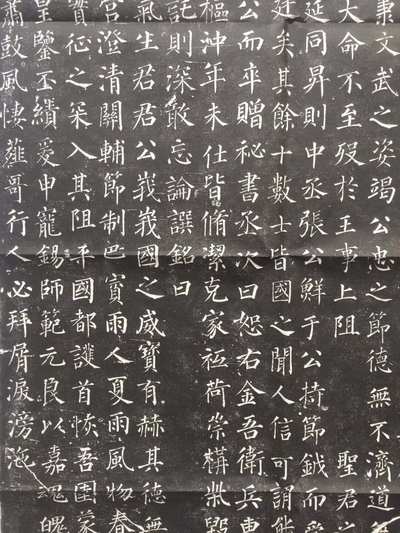 秉文武之姿竭公忠之節德無不濟道
大命不至歿於王事上阻 聖君之
延同昇則中丞張公鮮于公持節鉞而受
廷矣其餘十數士皆國之聞人信可謂能
公而卒贈祕書丞次曰恕右金吾衛兵曹
樞沖年未仕皆脩潔克家祗荷崇構煢毀
託則深敢忘論譔銘曰
氣生君君公峩峩國之威寶有赫其德無
宮澄清關輔節制巴賨雨人夏雨風物春
實征之罙入其阻平國都護首恢吾圉蒙
皇鑒丕績爰申寵錫師範元良以嘉魂魄
肅鼓風悽薤哥行人必拜屑淚滂沱